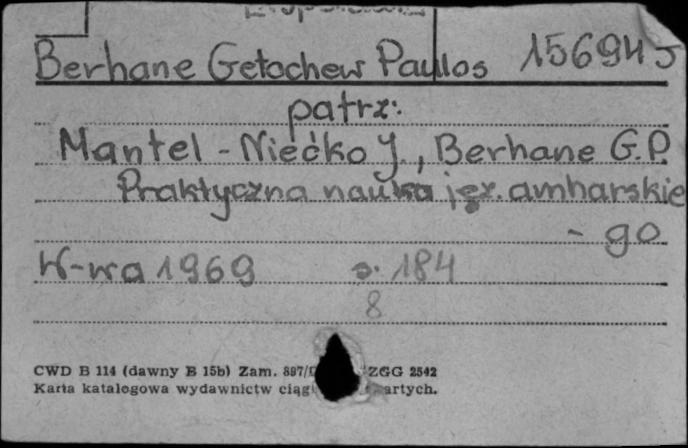 Berhane Getachew Paulos 15694 J
patrz:
Mantel-Niećko J., Berhane G.P.
Praktyczna nauka jęz. amharskie
- go
W-wa 1969 s. 184
8
CWD B 114 (dawny B 15b) Zam. 897/ ZGG 2542
Karta katalogowa wydawnictw